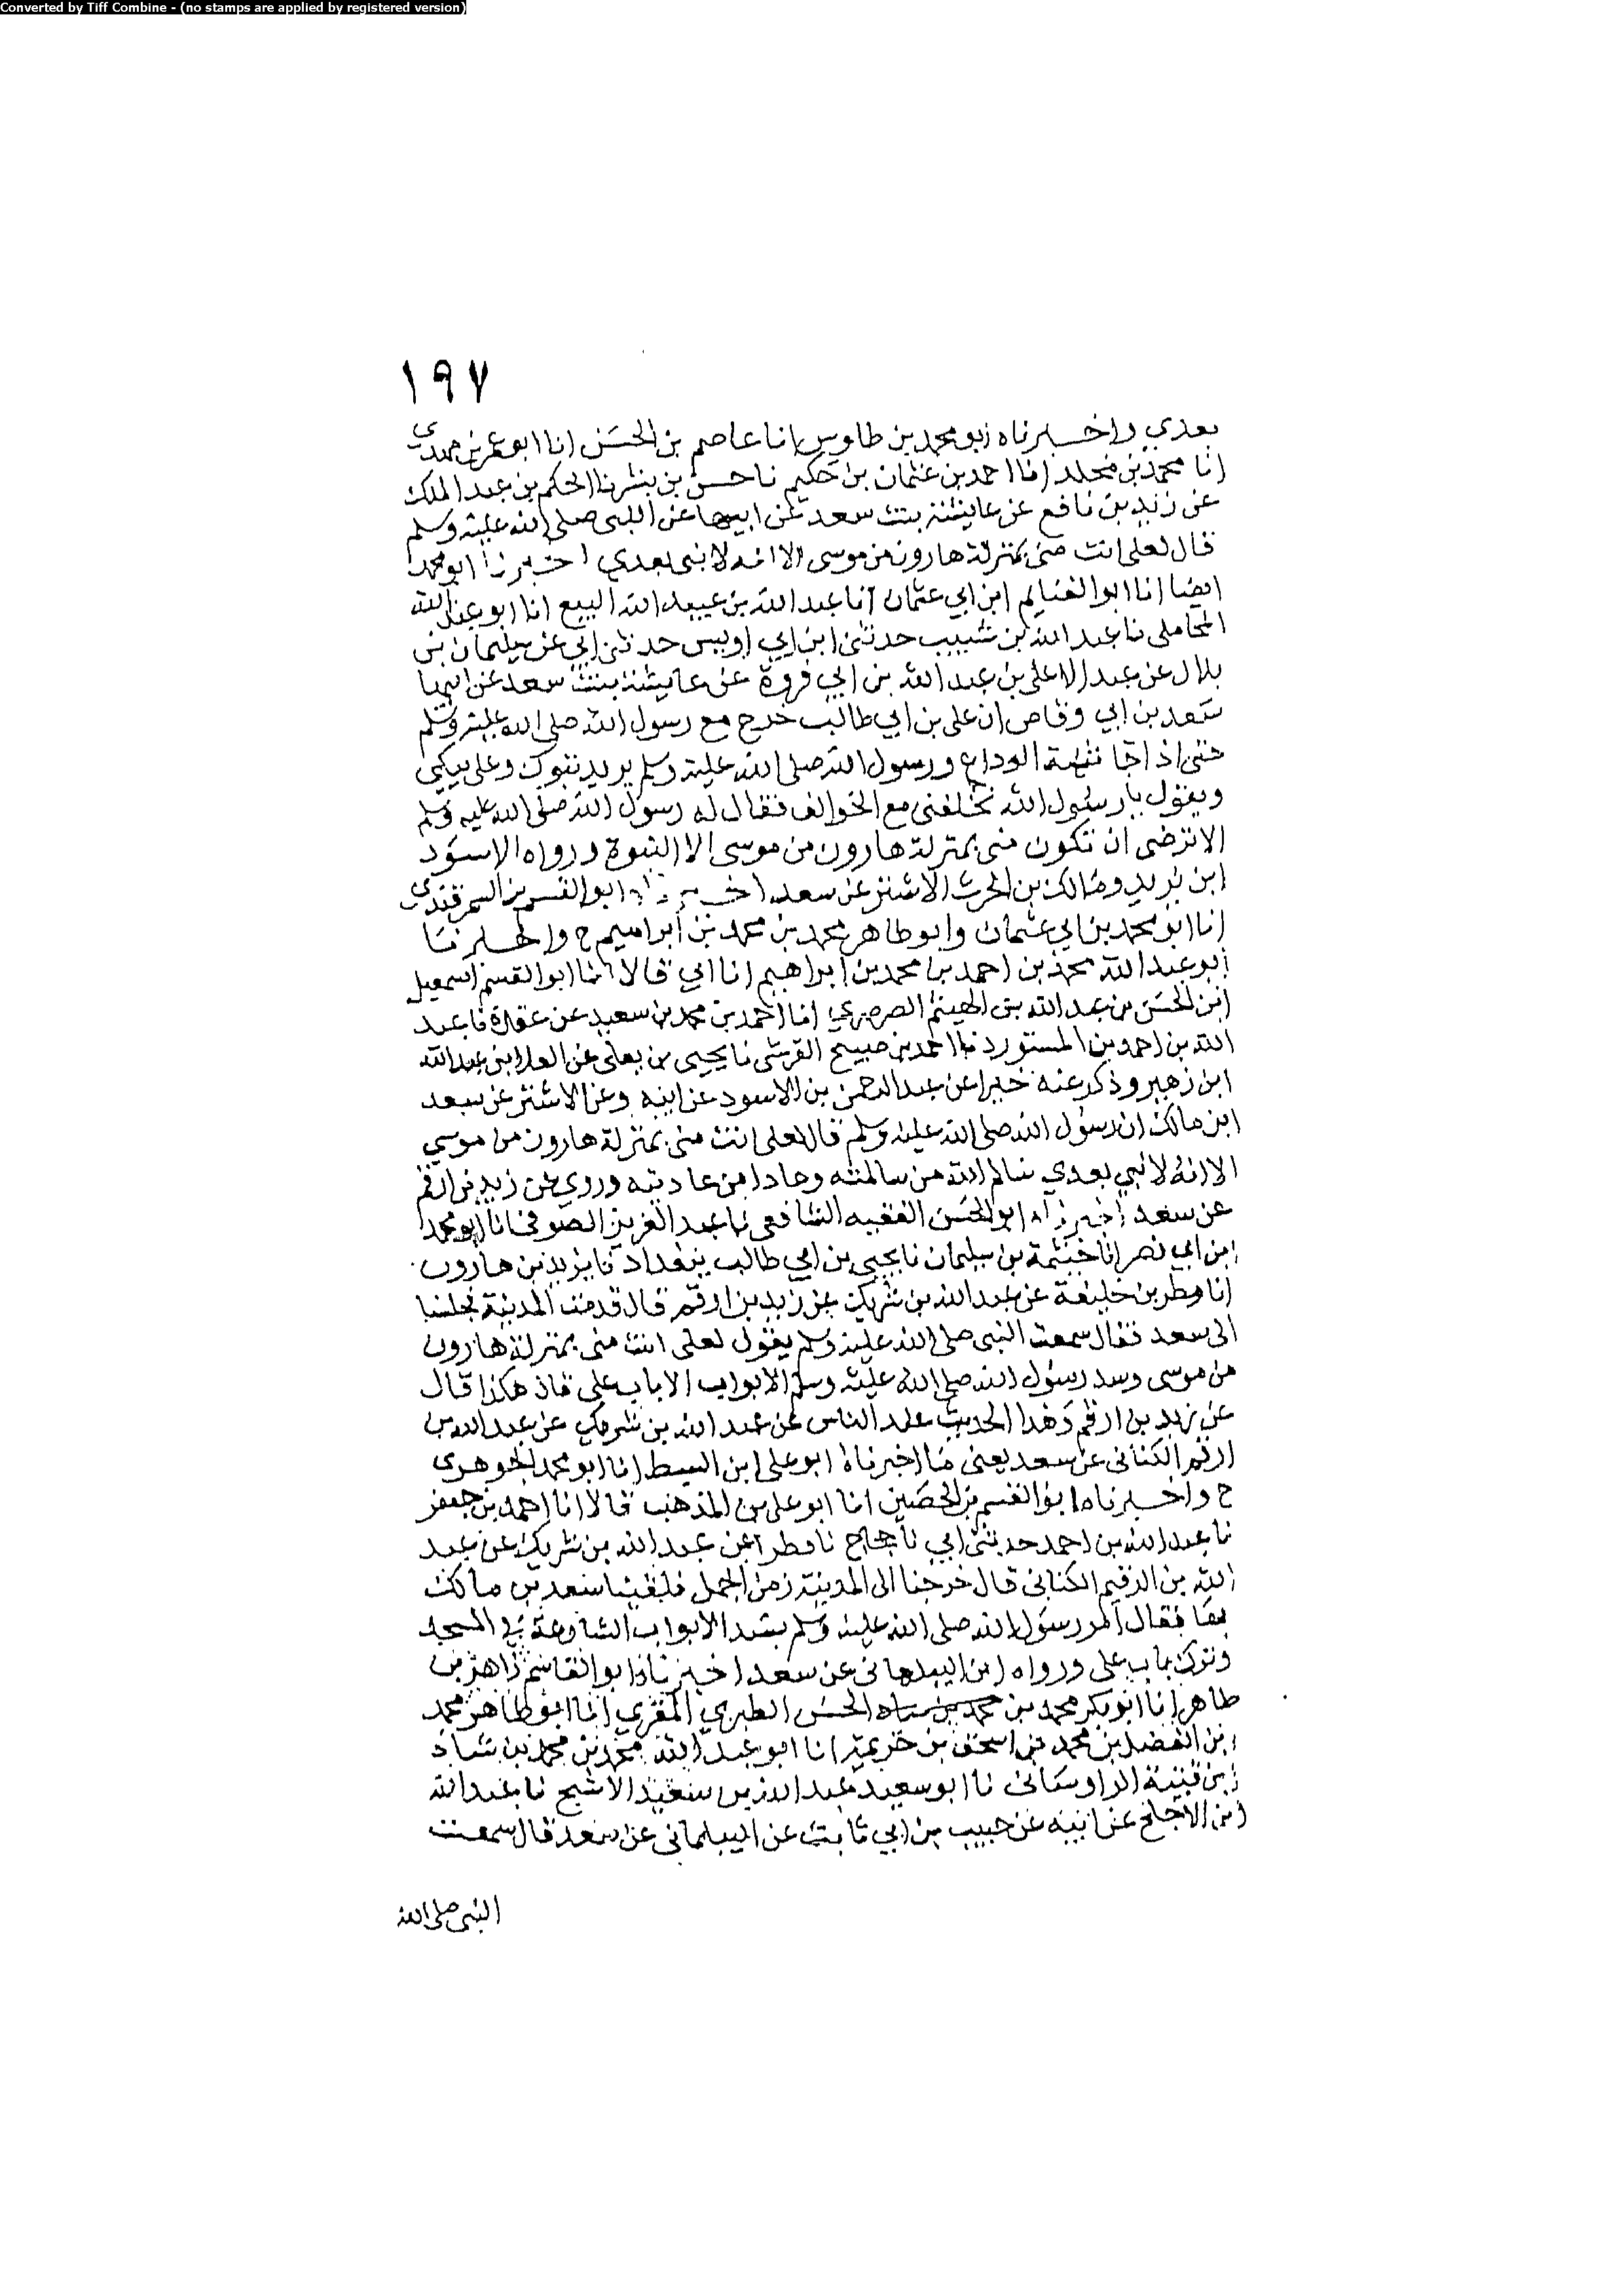 Converted by Tiff Combine - (no stamps are applied by registered version)
١٩٧
بعدي واخبرناه ابو محمد بن طاوس انا عاصم بن الحسن انا ابو عمر بن مهدي
انا محمد بن مخلد انا احمد بن عثمان بن حكيم نا حسن بن بشر نا الحكم بن عبد الملك
عن زيد بن نافع عن عايشة بنت سعد عن ابيها عن النبي صلى الله عليه وسلم
قال لعلي انت مني بمنزلة هارون من موسى الا انه لا نبي بعدي اخبرنا ابو محمد
ايضا انا ابو الغنايم ابن ابي عثمان انا عبد الله بن عبيد الله البيع انا ابو عبد الله
المحاملي نا عبد الله بن شبيب حدثني ابن ابي اويس حدثني ابي عن سليمان بن
بلال عن عبد الاعلى بن عبد الله بن ابي فروة عن عايشة بنت سعد عن ابيها
سعد بن ابي وقاص ان علي بن ابي طالب خرج مع رسول الله صلى الله عليه وسلم
حتى اذا جا ثنية الوداع ورسول الله صلى الله عليه وسلم يريد تبوك وعلي يبكي
ويقول يا رسول الله تخلفني مع الخوالف فقال له رسول الله صلى الله عليه وسلم
الا ترضى ان تكون مني بمنزلة هارون من موسى الا النبوة ورواه الاسود
ابن يزيد ومالك بن الحرث الاشتر عن سعد اخبرنا ابو القسم بن السمرقندي
انا ابو محمد بن ابي عثمان وابو طاهر محمد بن محمد بن ابراهيم ح واخبرنا
ابو عبد الله محمد بن احمد بن محمد بن ابراهيم انا ابي قالا انا ابو القسم اسمعيل
ابن الحسن بن عبد الله بن الهيثم الصرصري انا احمد بن محمد بن سعيد عن عقدة نا عبد
الله بن احمد بن المستورد نا احمد بن صبيح القرشي نا يحيى بن يعلى عن العلا بن عبد الله
ابن زهير وذكر عنه خيرا عن عبد الرحمن بن الاسود عن ابيه وعن الاشتر عن سعد
ابن مالك ان رسول الله صلى الله عليه وسلم قال لعلي انت مني بمنزلة هارون من موسي
الا انه لا نبي بعدي سالم الله من سالمته وعادا من عاديته وروي عن زيد بن ارقم
عن سعد اخبرناه ابو الحسن الفقيه الشافعي نا عبد العزيز الصوفي انا ابو محمد
ابن ابي نصر انا خيثمة بن سليمان نا يحيى بن ابي طالب ببغداد نا يزيد بن هارون
انا فطر بن خليفة عن عبد الله بن شريك عن زيد بن ارقم قال قدمت المدينة فجلسنا
الى سعد فقال سمعت النبي صلى الله عليه وسلم يقول لعلي انت مني بمنزلة هارون
من موسى وسد رسول الله صلى الله عليه وسلم الابواب الا باب علي هكذا قال
عن زيد بن ارقم وهذا الحديث عند الناس عن عبد الله بن شريك عن عبد الله بن
ارقم الكناني عن سعد يعني ما اخبرناه ابو علي ابن السبط انا ابو محمد الجوهري
ح واخبرناه ابو القسم بن الحصين انا ابو علي بن المذهب قالا انا احمد بن جعفر
نا عبد الله بن احمد حدثني ابي نا حجاج نا فطر عن عبد الله بن شريك عن عبد
الله بن الرقيم الكناني قال خرجنا الى المدينة زمن الجمل فلقينا سعد بن مالك
بها فقال امر رسول الله صلى الله عليه وسلم بسد الابواب الشارعة في المسجد
وترك باب علي ورواه ابن البيلماني عن سعد اخبرناه ابو القاسم زاهر بن
طاهر انا ابو بكر محمد بن الحسن الطبري المقري انا ابو طاهر محمد
ابن الفضل بن محمد بن اسحق بن خزيمة انا ابو عبد الله محمد بن محمد بن شاد
ابن قتيبة الراوساني نا ابو سعيد عبد الله بن سعيد الاشج نا عبد الله
ابن الاجلح عن ابيه عن حبيب بن ابي ثابت عن البيلماني عن سعد قال سمعت
النبي صلى الله